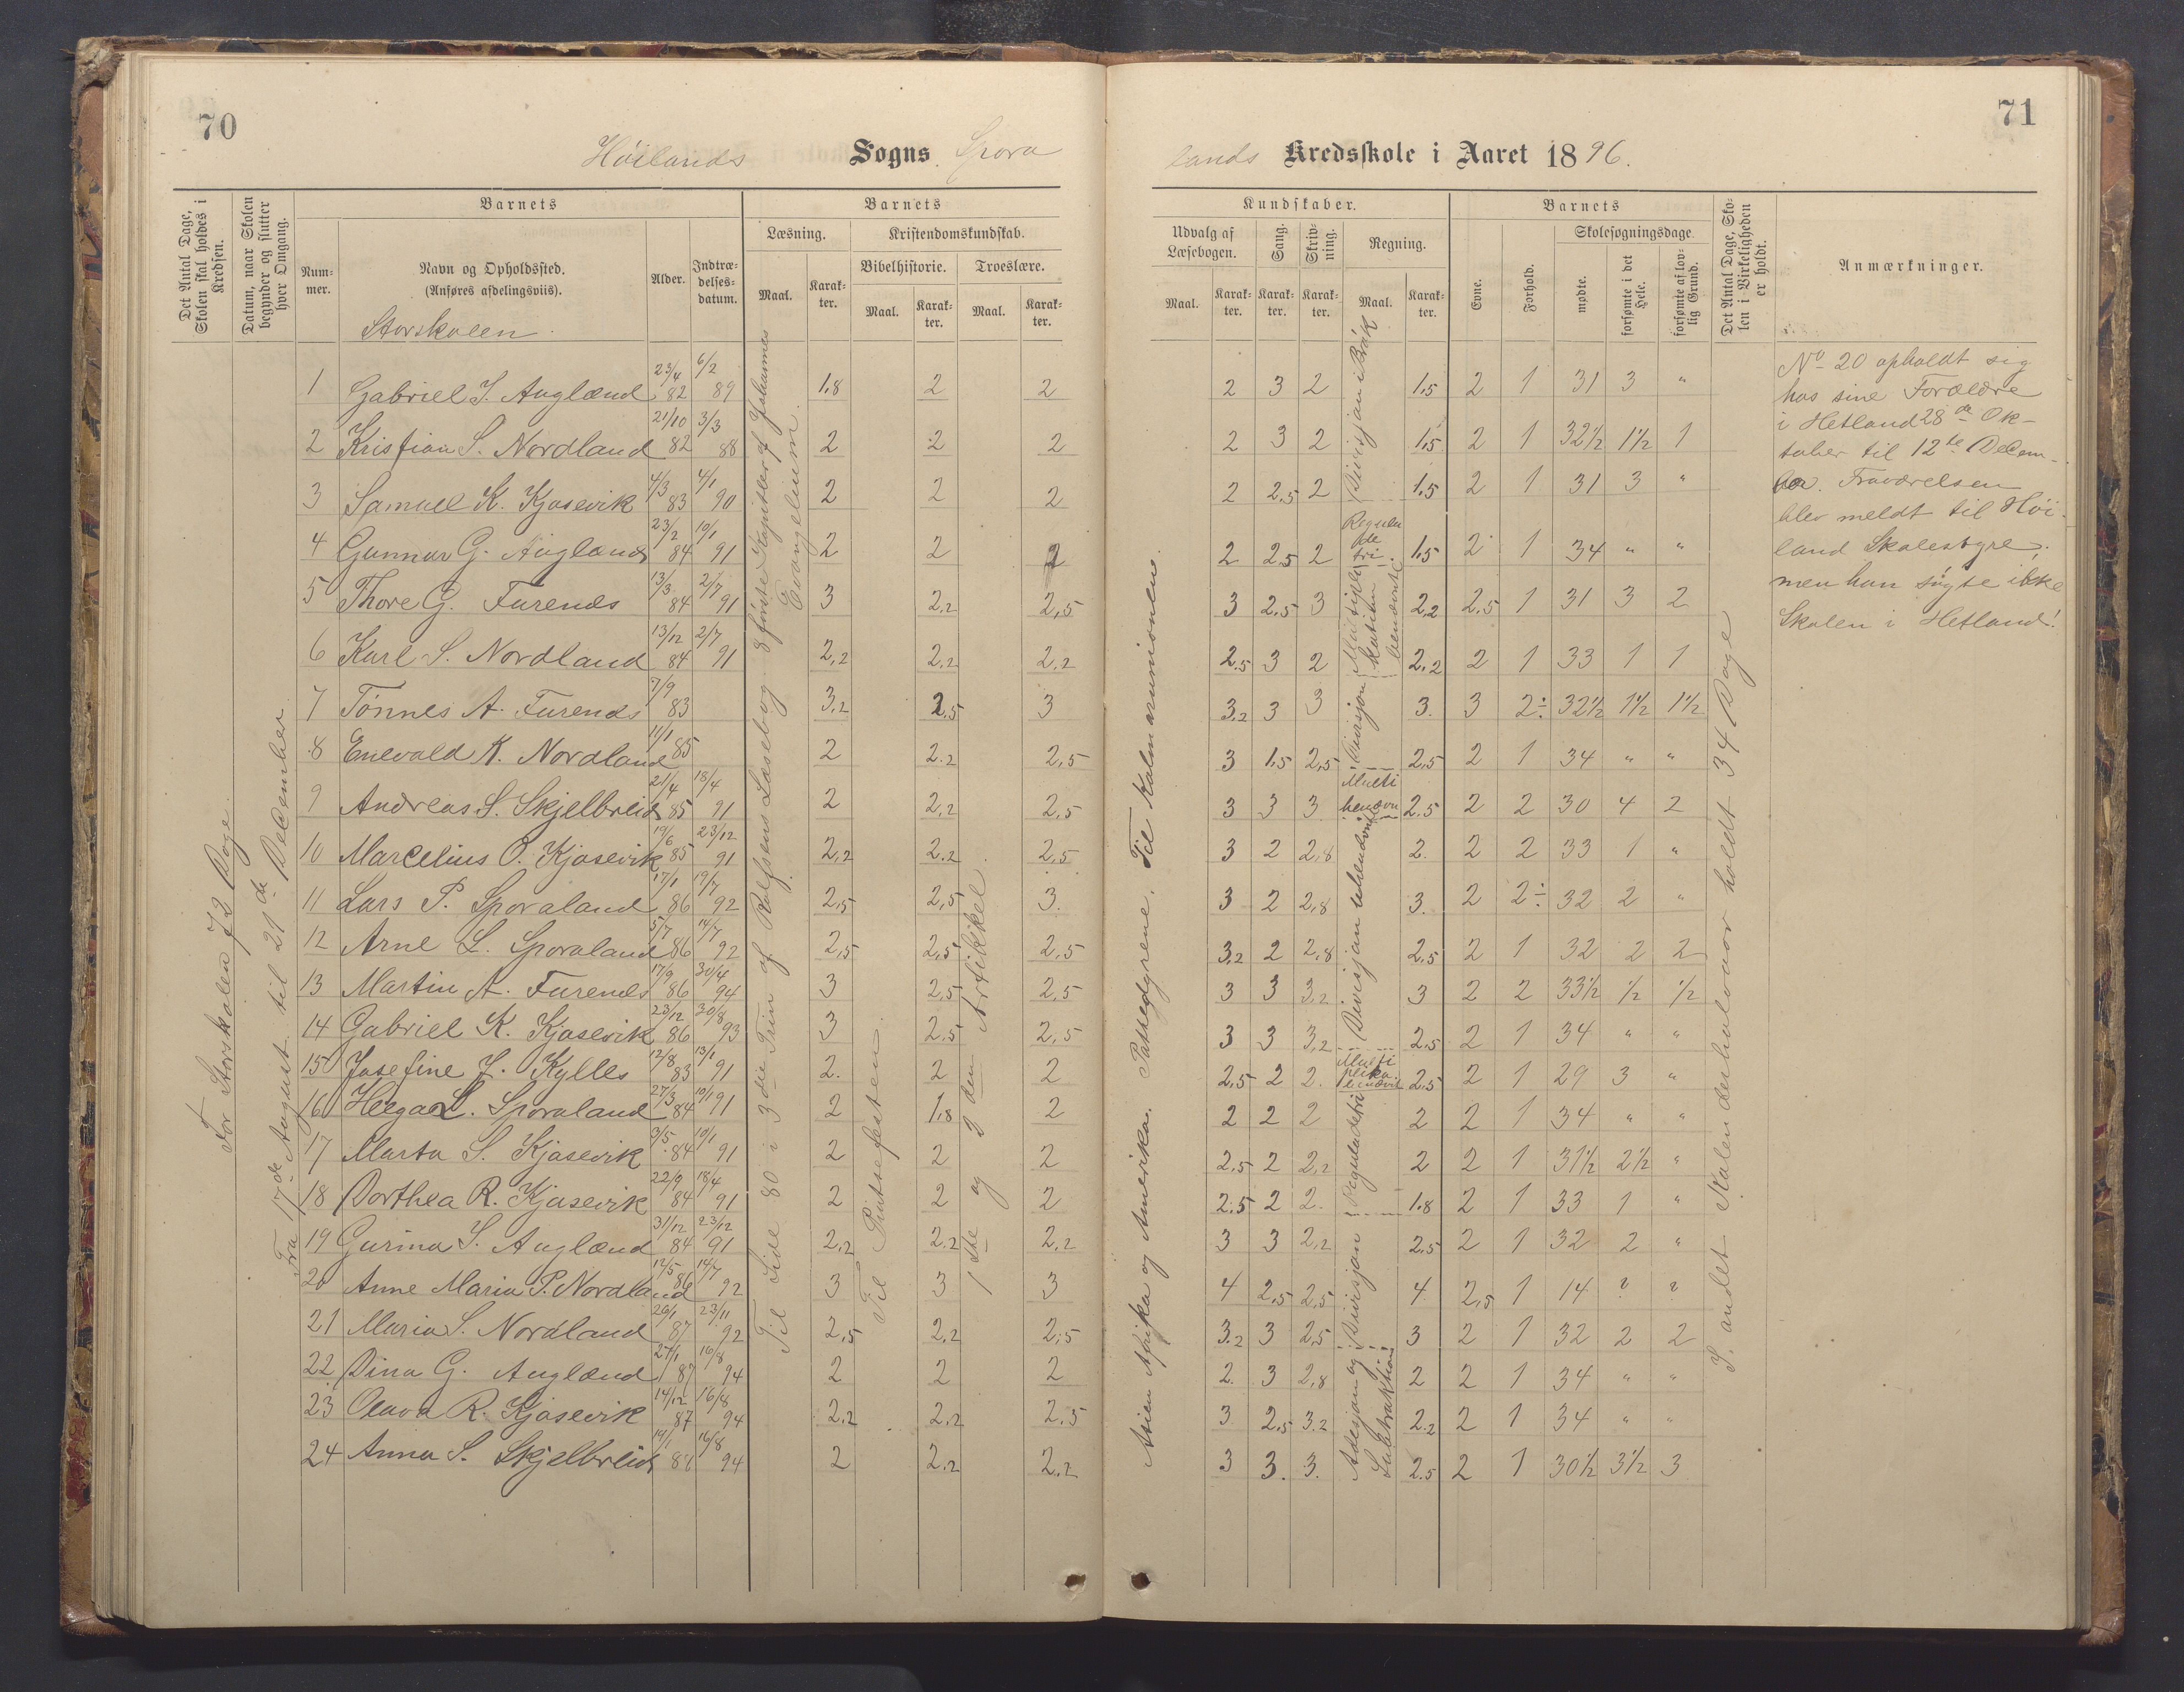 70
71
Höilands Sogns Spora
lands Kredsskole i Aaret 1896.
Det Antal Dage, Skolen skal holdes i Kredsen.
Datum, naar Skolen begynder og slutter hver Omgang.
Barnets
Num-mer.
Navn og Opholdssted.
(Anføres afdelingsviis).
Alder.
Indtræ-delses-datum.
Barnets
Læsning.
Kristendomskundskab.
Bibelhistorie.
Troeslære.
Maal. Karak-ter. Maal. Karak-ter. Maal. Karak-ter.
Kundskaber.
Udvalg af Læsebogen.
Sang.
Skriv-ning.
Regning.
Maal. Karak-ter. Karak-ter. Karak-ter. Maal. Karak-ter.
Barnets
Evne.
Forhold.
Skolesøgningsdage.
mødte.
forsømte i det Hele.
forsømte af lov-lig Grund.
Det Antal Dage, Sko-len i Virkeligheden er holdt.
Anmærkninger.
Storskolen.
1 Gabriel J. Auglænd 23/4 82 6/2 89 1.8 2 2 2 3 2 1.5 2 1 31 3 "
2 Kristian S. Nordland 21/10 82 3/3 88 2 2 2 2 3 2 1.5 2 1 32½ 1½ 1
3 Samuel K. Kjosevik 4/3 83 4/1 90 2 2 2 2 2.5 2 1.5 2 1 31 3 "
4 Gunnar G. Auglænd 23/2 84 10/1 91 2 2 2 2 2.5 2 1.5 2 1 34 " "
5 Thore G. Furenes 13/3 84 2/7 91 3 2.2 2.5 3 2.5 3 2.2 2.5 1 31 3 2
6 Karl S. Nordland 13/12 84 2/7 91 2.2 2.2 2.2 2.5 3 2 2.2 2 1 33 1 1
7 Tönnes A. Furenes 7/9 83 3.2 2.5 3 3.2 3 3 3. 3 2÷ 32½ 1½ 1½
8 Enevald K. Nordland 11/1 85 2 2.2 2.5 3 1.5 2.5 2.5 2 1 34 " "
9 Andreas S. Skjelbreid 21/4 85 18/4 91 2 2.2 2.5 3 3 3 2.5 2 2 30 4 2
10 Marcelius O. Kjosevik 19/6 85 23/12 91 2.2 2.2 2.5 3 2 2.8 2. 2 2 33 1 "
11 Lars P. Sporaland 17/1 86 19/7 92 2.5 2.5 3. 3 2 2.8 3. 2 2÷ 32 2 "
12 Arne L. Sporaland 5/7 86 14/7 92 2.5 2.5 2.5 3.2 2 2.8 2.5 2 1 32 2 2
13 Martin A. Furenes 17/9 86 30/4 94 3 2.5 2.5 3 3 3.2 3 2 2 33½ ½ ½
14 Gabriel K. Kjosevik 23/12 86 30/8 93 3 2.5 2.5 3 3 3.2 2.5 2 1 34 " "
15 Josefine J. Kylles 12/8 83 13/1 91 2. 2 2 2.5 2 2. 2.5 2 1 29 3 "
16 Helga L. Sporaland 27/3 84 10/1 91 2 1.8 2 2 2 2 2 2 1 34 " "
17 Marta S. Kjosevik 3/5 84 10/1 91 2 2 2 2.5 2 2.2 2 2 1 31½ 2½ "
18 Dorthea R. Kjosevik 22/9 84 18/4 91 2 2 2 2.5 2 2. 1.8 2 1 33 1 "
19 Gurina S. Auglænd 31/12 84 23/12 91 2.2 2.2 2.2 3 3 2.2 2.5 2 1 32 2 "
20 Anne Maria P. Nordland 12/5 86 14/7 92 3 3 3 4 2.5 2.5 4 2.5 1 14 ? ?
21 Maria S. Nordland 26/1 87 23/11 92 2.5 2.2 2.5 3.2 3 2.5 3 2 1 32 2 2
22 Dina G. Auglænd 27/1 87 16/8 94 2 2 2 2. 3 2.8 2 2 1 34 " "
23 Olava R. Kjosevik 14/12 87 16/8 94 2.2 2.2 2.5 3 2.5 3.2 2.2 2 1 34 " "
24 Anna S. Skjelbreid 16/8 94 2 2.2 2.2 3 3. 3. 2.5 2 1 30½ 3½ 3
For Storskolen 72 Dage.
Fra 17de August til 21de December
Til Side 80 i 3die Trin af Rolfsens Læsebog. 8 förste Kapitler af Johannes
Evangelium.
Til Pintsefesten.
1ste og 2den Artikkel
Asien Afrika og Amerika. Pattedyrene, Til
Divisjon i Brøk
Regula de tri
Multiplikation benævnte
Divisjon
Multi benævn
Divisjon ubenævnte
Multiplika benævnt
Regula de tri
Divisjon
Adisjon og Subtraktion
I andet Skolen derhalvaar holdt 34 Dage
No 20 opholdt sig
hos sine Forældre
i Hetland 28de Ok-
tober til 12te Decem-
ber. Fraværelsen
blev meldt til Höi-
land Skolestyre;
men hun søgte ikke
Skolen i Hetland!